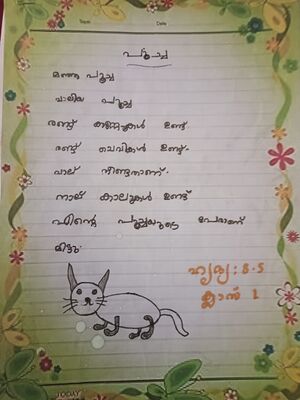 Topic
Date
പൂച്ച
മഞ്ഞ പൂച്ച
ചാലിയ പൂച്ച
രണ്ട് കണ്ണുകൾ ഉണ്ട്.
രണ്ട് ചെവികൾ ഉണ്ട്.
വാല് നീണ്ടതാണ്.
നാല് കാലുകൾ ഉണ്ട്
എൻ്റെ പൂച്ചയുടെ പേരാണ്
മിട്ടു.
ഹൃദ്യ : S.S
ക്ലാസ് 1
TODAY